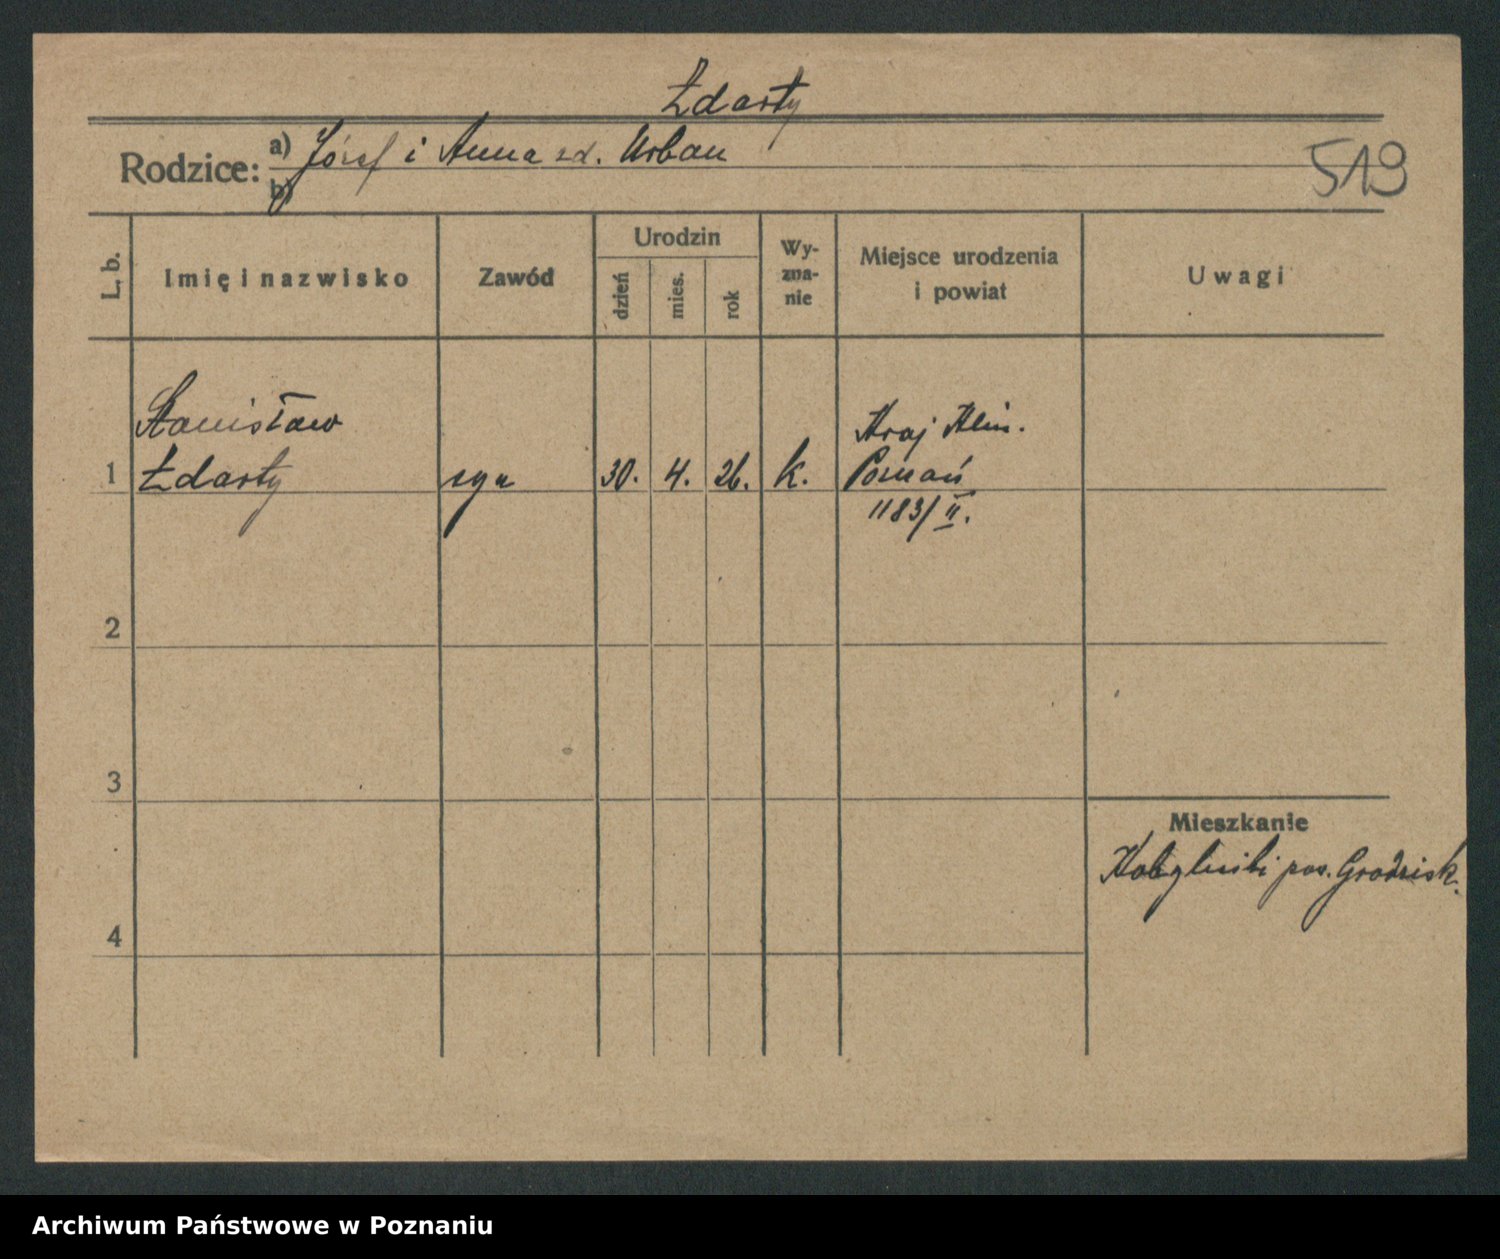 Żdarty
Rodzice: a) Józef i Anna zd. Urban
b)
519
L. b.
Imię i nazwisko
Zawód
Urodzin
dzień
mies.
rok
Wy-
zna-
nie
Miejsce urodzenia
i powiat
Uwagi
Stanisław
Kraj Klin.
1 Żdarty syn 30. 4. 26. k. Poznań
1183/II.
2
3
Mieszkanie
pow. Grodzisk.
4
Archiwum Państwowe w Poznaniu